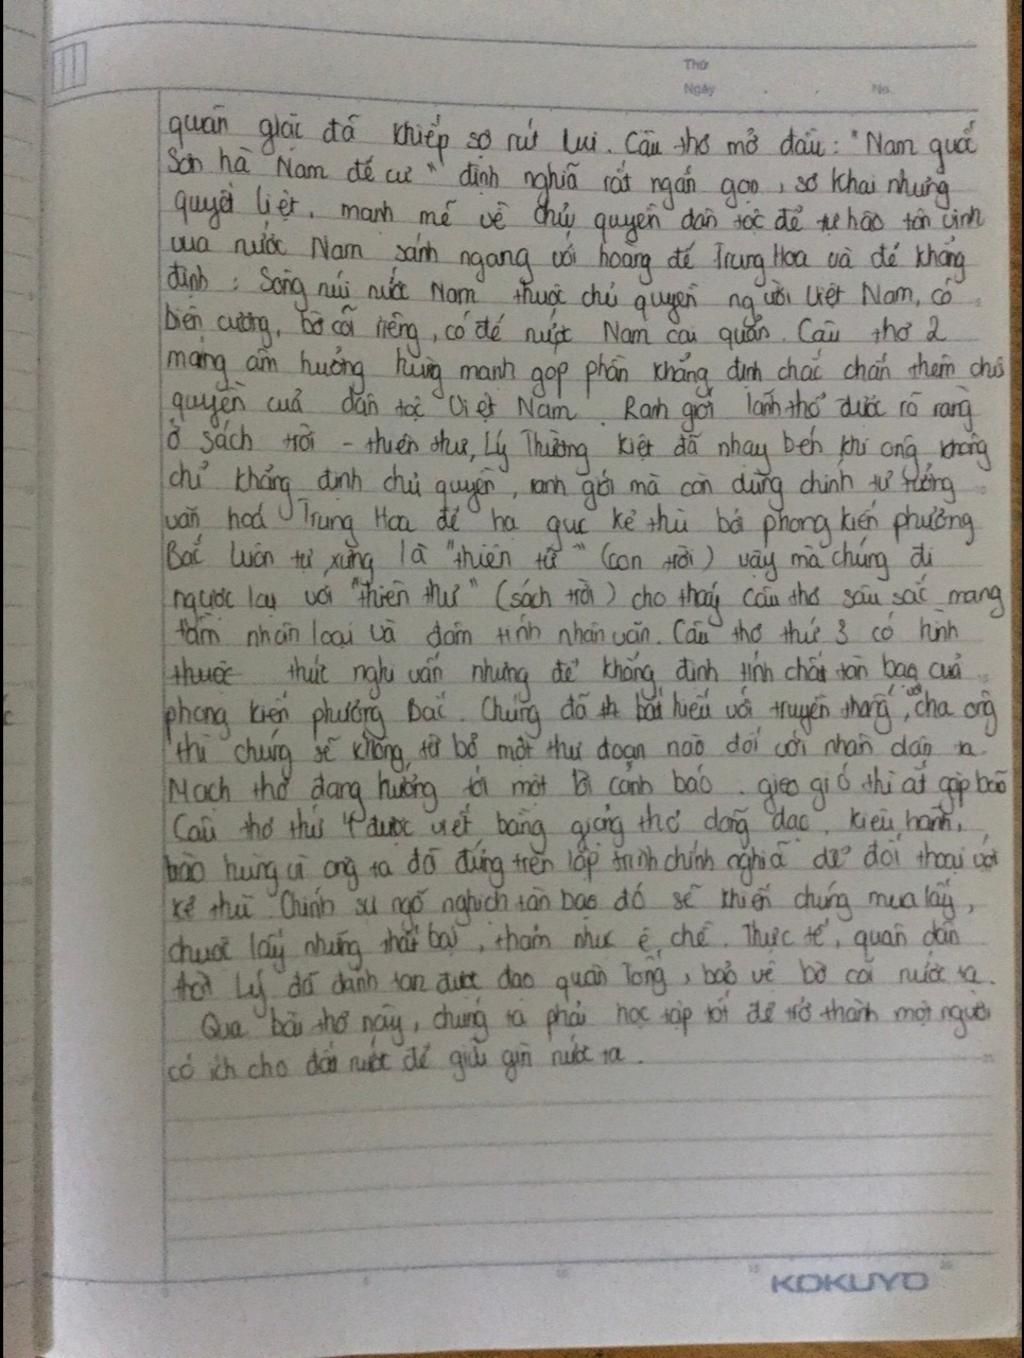 Thứ
Ngày . . No.
quân giặc đã khiếp sợ rút lui. Câu thơ mở đầu: "Nam quốc
Sơn hà Nam đế cư" định nghĩa rất ngắn gọn, sơ khai nhưng
quyết liệt, mạnh mẽ về chủ quyền dân tộc để tự hào tôn vinh
vua nước Nam sánh ngang với hoàng đế Trung Hoa và để khẳng
định: Sông núi nước Nam thuộc chủ quyền người Việt Nam, có
biên cương, bờ cõi riêng, có đế nước Nam cai quản. Câu thơ 2
mang âm hưởng hùng mạnh góp phần khẳng định chắc chắn thêm chủ
quyền của dân tộc Việt Nam. Ranh giới lãnh thổ được rõ ràng
ở sách trời - thiên thư, Lý Thường Kiệt đã nhạy bén khi ông không
chỉ khẳng định chủ quyền, ranh giới mà còn dùng chính tư tưởng
văn hoá Trung Hoa để hạ gục kẻ thù bởi phong kiến phương
Bắc luôn tự xưng là "thiên tử" (con trời) vậy mà chúng đi
ngược lại với "thiên thư" (sách trời) cho thấy câu thơ sâu sắc mang
tầm nhân loại và đậm tính nhân văn. Câu thơ thứ 3 có hình
thuộc thức nghi vấn nhưng để khẳng định tính chất tàn bạo của
phong kiến phương Bắc. Chúng đã th bất hiếu với truyền thống, với cha ông
thì chúng sẽ không từ bỏ một thủ đoạn nào đối với nhân dân ta.
Mạch thơ đang hướng tới một lời cảnh báo. gieo gió thì ắt gặp bão
Câu thơ thứ 4 được viết bằng giọng thơ dõng dạc, kiêu hãnh,
hào hùng vì ông ta đã đứng trên lập trình chính nghĩa để đối thoại với
kẻ thù. Chính sự ngỗ nghịch tàn bạo đó sẽ khiến chúng mua lấy,
chuốc lấy những thất bại, thảm như ê chề. Thực tế, quân dân
thời Lý đã đánh tan được đạo quân Tống, bảo vệ bờ cõi nước ta.
Qua bài thơ này, chúng ta phải học tập tốt để trở thành một người
có ích cho đất nước để giữ gìn nước ta.
KOKUYO